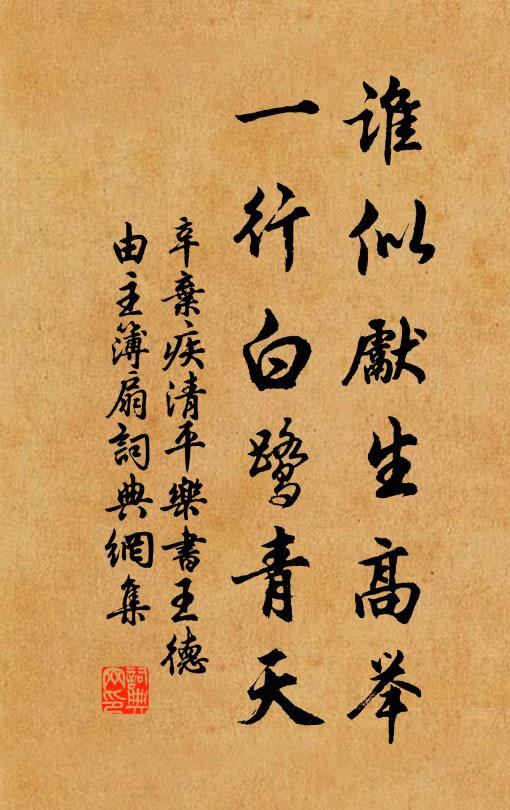 誰似獻生高举
一行白鹭青天
辛棄疾清平樂書王德
由主簿扇詞典網集
詞典網印